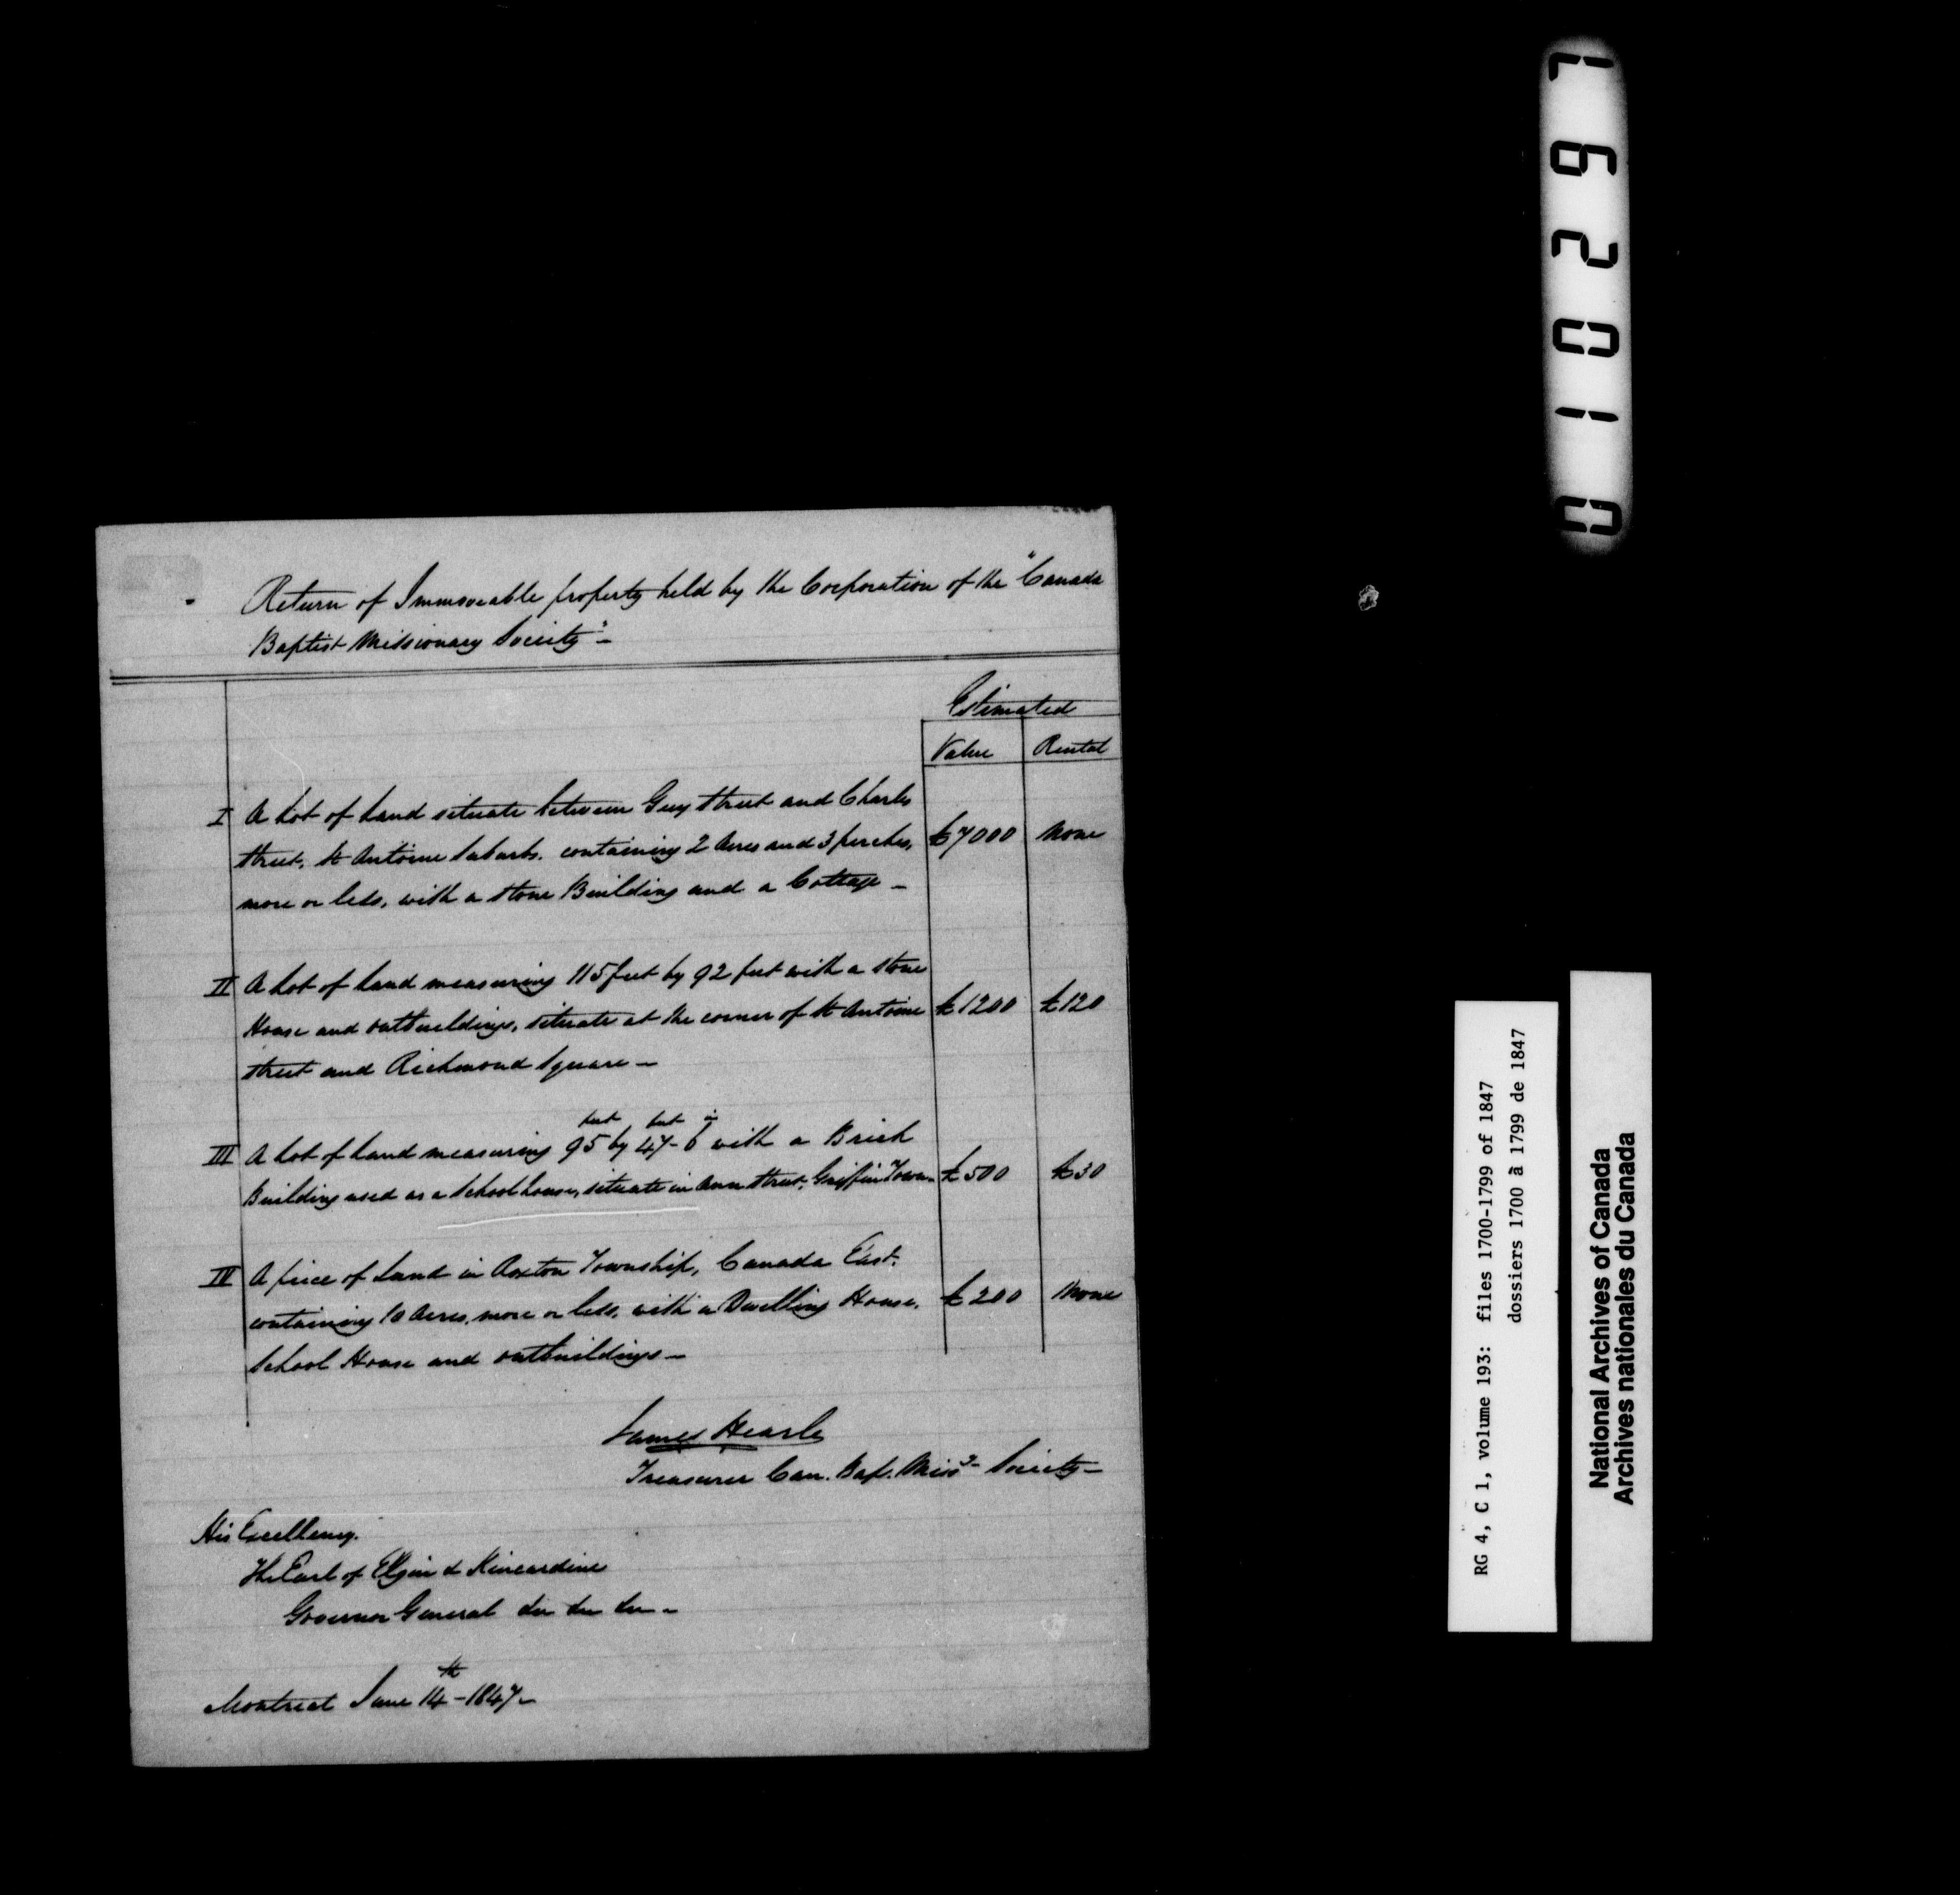 Return of Immoveable property held by the Corporation of the "Canada
Baptist Missionary Society"-
Estimated
Value Rental
I A Lot of Land situate between Guy Street and Charles
Street, St Antoine Suburbs. containing 2 Acres and 3 perches,
more or less, with a Stone Building and a Cottage -
£7000 None
II A Lot of Land measuring 115 feet by 92 feet with a stone
House and outbuildings, situate at the corner of St Antoine
Street and Richmond Square -
£1200 £120
feet feet in
III A Lot of Land measuring 95 by 47-6 with a Brick
Building used as a Schoolhouse, situate in Ann Street, Griffin Town-
£500 £30
IV A piece of Land in Roxton Township, Canada East,
containing 10 Acres, more or less, with a Dwelling House,
School House and outbuildings -
£200 None
James Hearle
Treasurer Can. Bapt. Missy- Society-
His Excellency.
The Earl of Elgin & Kincardine
Governor General &c &c &c -
Montreal June 14th - 1847-
010297
RG 4, C 1, volume 193: files 1700-1799 of 1847
dossiers 1700 à 1799 de 1847
National Archives of Canada
Archives nationales du Canada